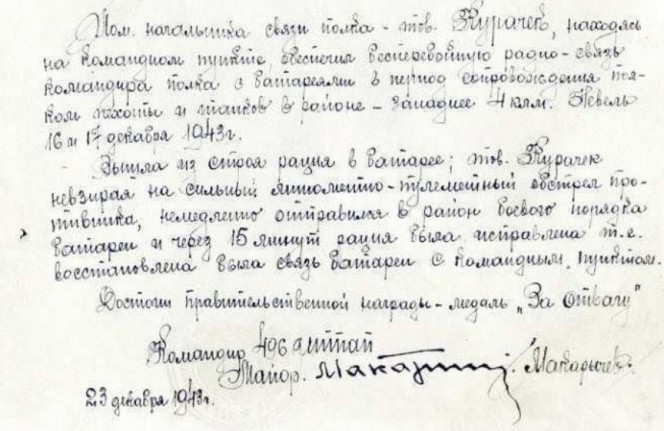 Пом. начальника связи полка - тов. Журачек, находясь
на командном пункте, обеспечил бесперебойную радио-связь
командира полка с батареями в период сопровождения пол-
ком пехоты и танков в районе - западнее 4 клм. Невель
16 и 17 декабря 1943г.
Вышла из строя рация в батарее; тов. Журачек
невзирая на сильный минометно-пулеметный обстрел про-
тивника, немедленно отправился в район боевого порядка
батареи и через 15 минут рация была исправлена т.е.
восстановлена была связь батареи с командным пунктом.
Достоин правительственной награды - медаль „За отвагу"
Командир 496
Майор. Макарычев.
23 декабря 1943г.